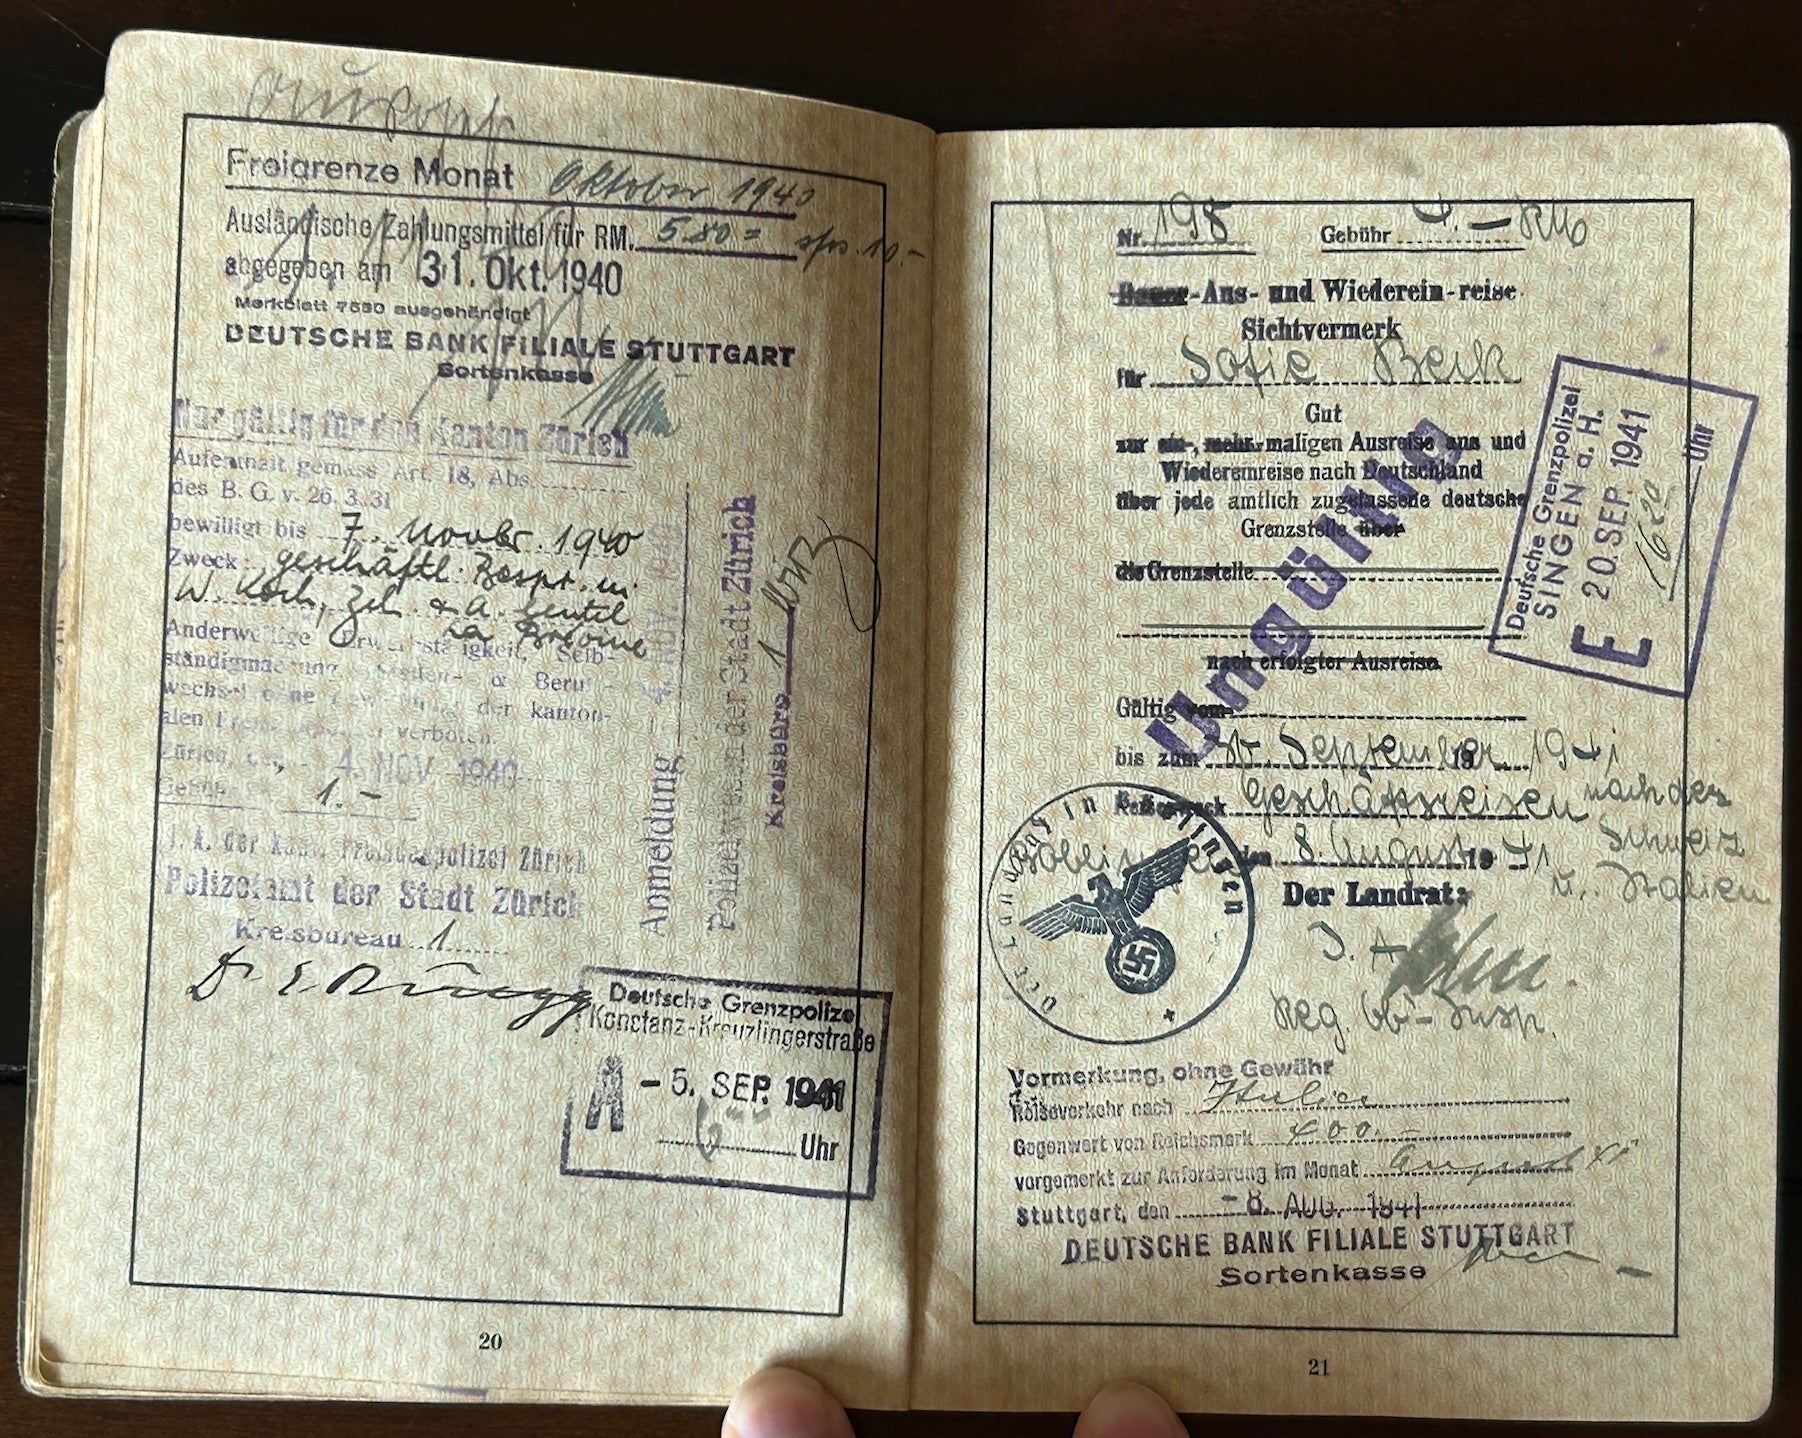 Freigrenze Monat Oktober 1940
Ausländische Zahlungsmittel für RM. 5.80 = sfrs. 10.-
abgegeben am 31. Okt. 1940
Merkblatt 7530 ausgehändigt
DEUTSCHE BANK FILIALE STUTTGART
Sortenkasse
Nur gültig für den Kanton Zürich
Aufenthalt gemäss Art. 18, Abs.
des B. G. v. 26. 3. 31
bewilligt bis 7. Novbr. 1940
Zweck: geschäftl. Bespr. m.
W. Koch, Zch. & A.
Anderweitige Erwerbstätigkeit, Selb-
ständigmachung, Stellen- & Beruf-
wechsel ohne der kanton-
alen verboten.
Zürich, den 4. NOV. 1940
Gebühr 1.-
I. A. der kant. Fremdenpolizei Zürich
Polizeiamt der Stadt Zürich
Kreisbureau 1
Anmeldung
Polizeiwesen der Stadt Zürich
Kreisbüro 1
Deutsche Grenzpolizei
Konstanz-Kreuzlingerstraße
A - 5. SEP. 1941
Uhr
20
Nr. 198 Gebühr 4.- RM
Dauer-Aus- und Wiederein-reise
Sichtvermerk
für Sofie Beck
Gut
zur ein-, mehr-maligen Ausreise aus und
Wiedereinreise nach Deutschland
über jede amtlich zugelassene deutsche
Grenzstelle über
die Grenzstelle
nach erfolgter Ausreise.
Ungültig
Gültig vom
bis zum September 1941
Reisezweck Geschäftsreisen nach der
Schweiz
u. Italien
Böblingen den 8. August 1941
Der Landrat:
I. A.
Reg. Ob-Insp.
Der Landrat in Böblingen
Deutsche Grenzpolizei
SINGEN a. H.
E 20. SEP. 1941
16 20 Uhr
Vormerkung, ohne Gewähr
Reiseverkehr nach Italien
Gegenwert von Reichsmark 400.-
vorgemerkt zur Anforderung im Monat August 41
Stuttgart, den - 8. AUG. 1941
DEUTSCHE BANK FILIALE STUTTGART
Sortenkasse
21